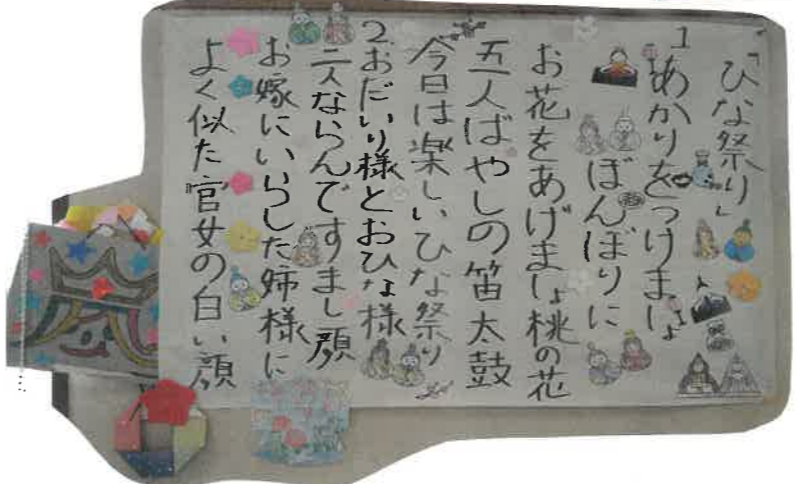 「ひな祭り」
1 あかりをつけましょ
ぼんぼりに
お花をあげましょ桃の花
五人ばやしの笛太鼓
今日は楽しいひな祭り
2.おだいり様とおひな様
二人ならんですまし顔
お嫁にいらした姉様に
よく似た官女の白い顔